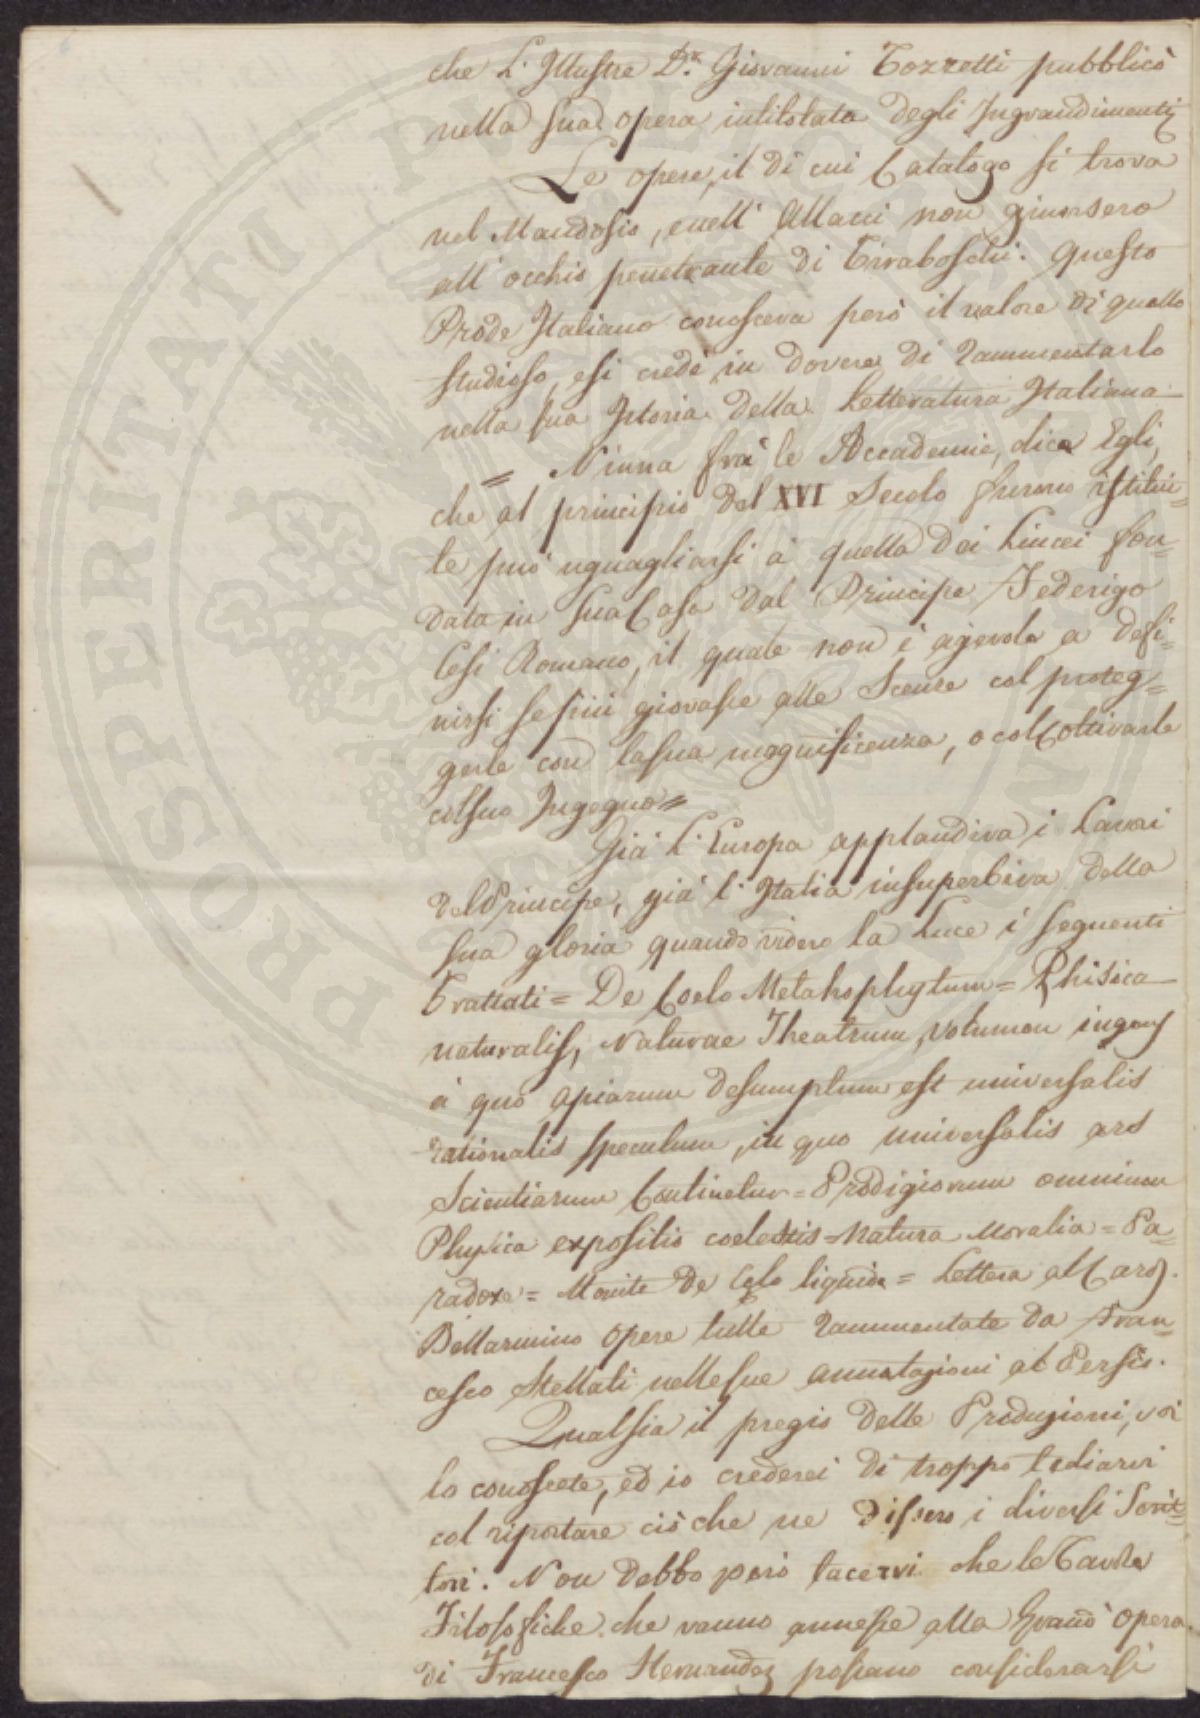 che L'Illustre D.r Giovanni Tozzetti pubblicò
nella sua opera intitolata degli Ingrandimenti
Le opere, il di cui Catalogo si trova
nel Mandosio, e nell' Allacci non giunsero
all' occhio penetrante di Tiraboschi. Questo
Prode Italiano conosceva però il valore di quello
studioso, e si credè in dovere di rammentarlo
nella sua Istoria della Letteratura Italiana
= Niuna frà le Accademie, dice Egli,
che al principio del XVI Secolo furono istitui=
te può uguagliarsi à quella dei Lincei fon=
data in sua Casa dal Principe Federigo
Cesi Romano, il quale non è agevole a defi=
nirsi se più giovasse alle Scenze col proteg=
gerle con la sua magnificenza, o col Coltivarle
col suo Ingegno=
Già L'Europa applaudiva i Lavori
del Principe, già l'Italia insuperbiva della
sua gloria quando videro la Luce i seguenti
Trattati = De Coelo Metahophytum = Phisica
naturalis, Naturae Theatrum, volumen ingens
à quo apiarum desumptum est universalis
rationalis speculum, in quo universalis ars
Scientiarum Continetur = Prodigiorum omnium
Physica expositio coelestis = Natura Moralia = Pa=
radoxe = Monita de Celo liquido = Lettera al Card.
Bellarmino opere tutte rammentate da Fran=
cesco Stellati nelle sue annotazioni al Persio.
Qual sia il pregio delle Produzioni, voi
lo conoscete, ed io crederei di troppo tediarvi
col riportare ciò che ne dissero i diversi Scrit=
tori. Non debbo però tacervi che le Tavole
Filosofiche che vanno annesse alla Grand' opera
di Francesco Hernandez possano considerarsi